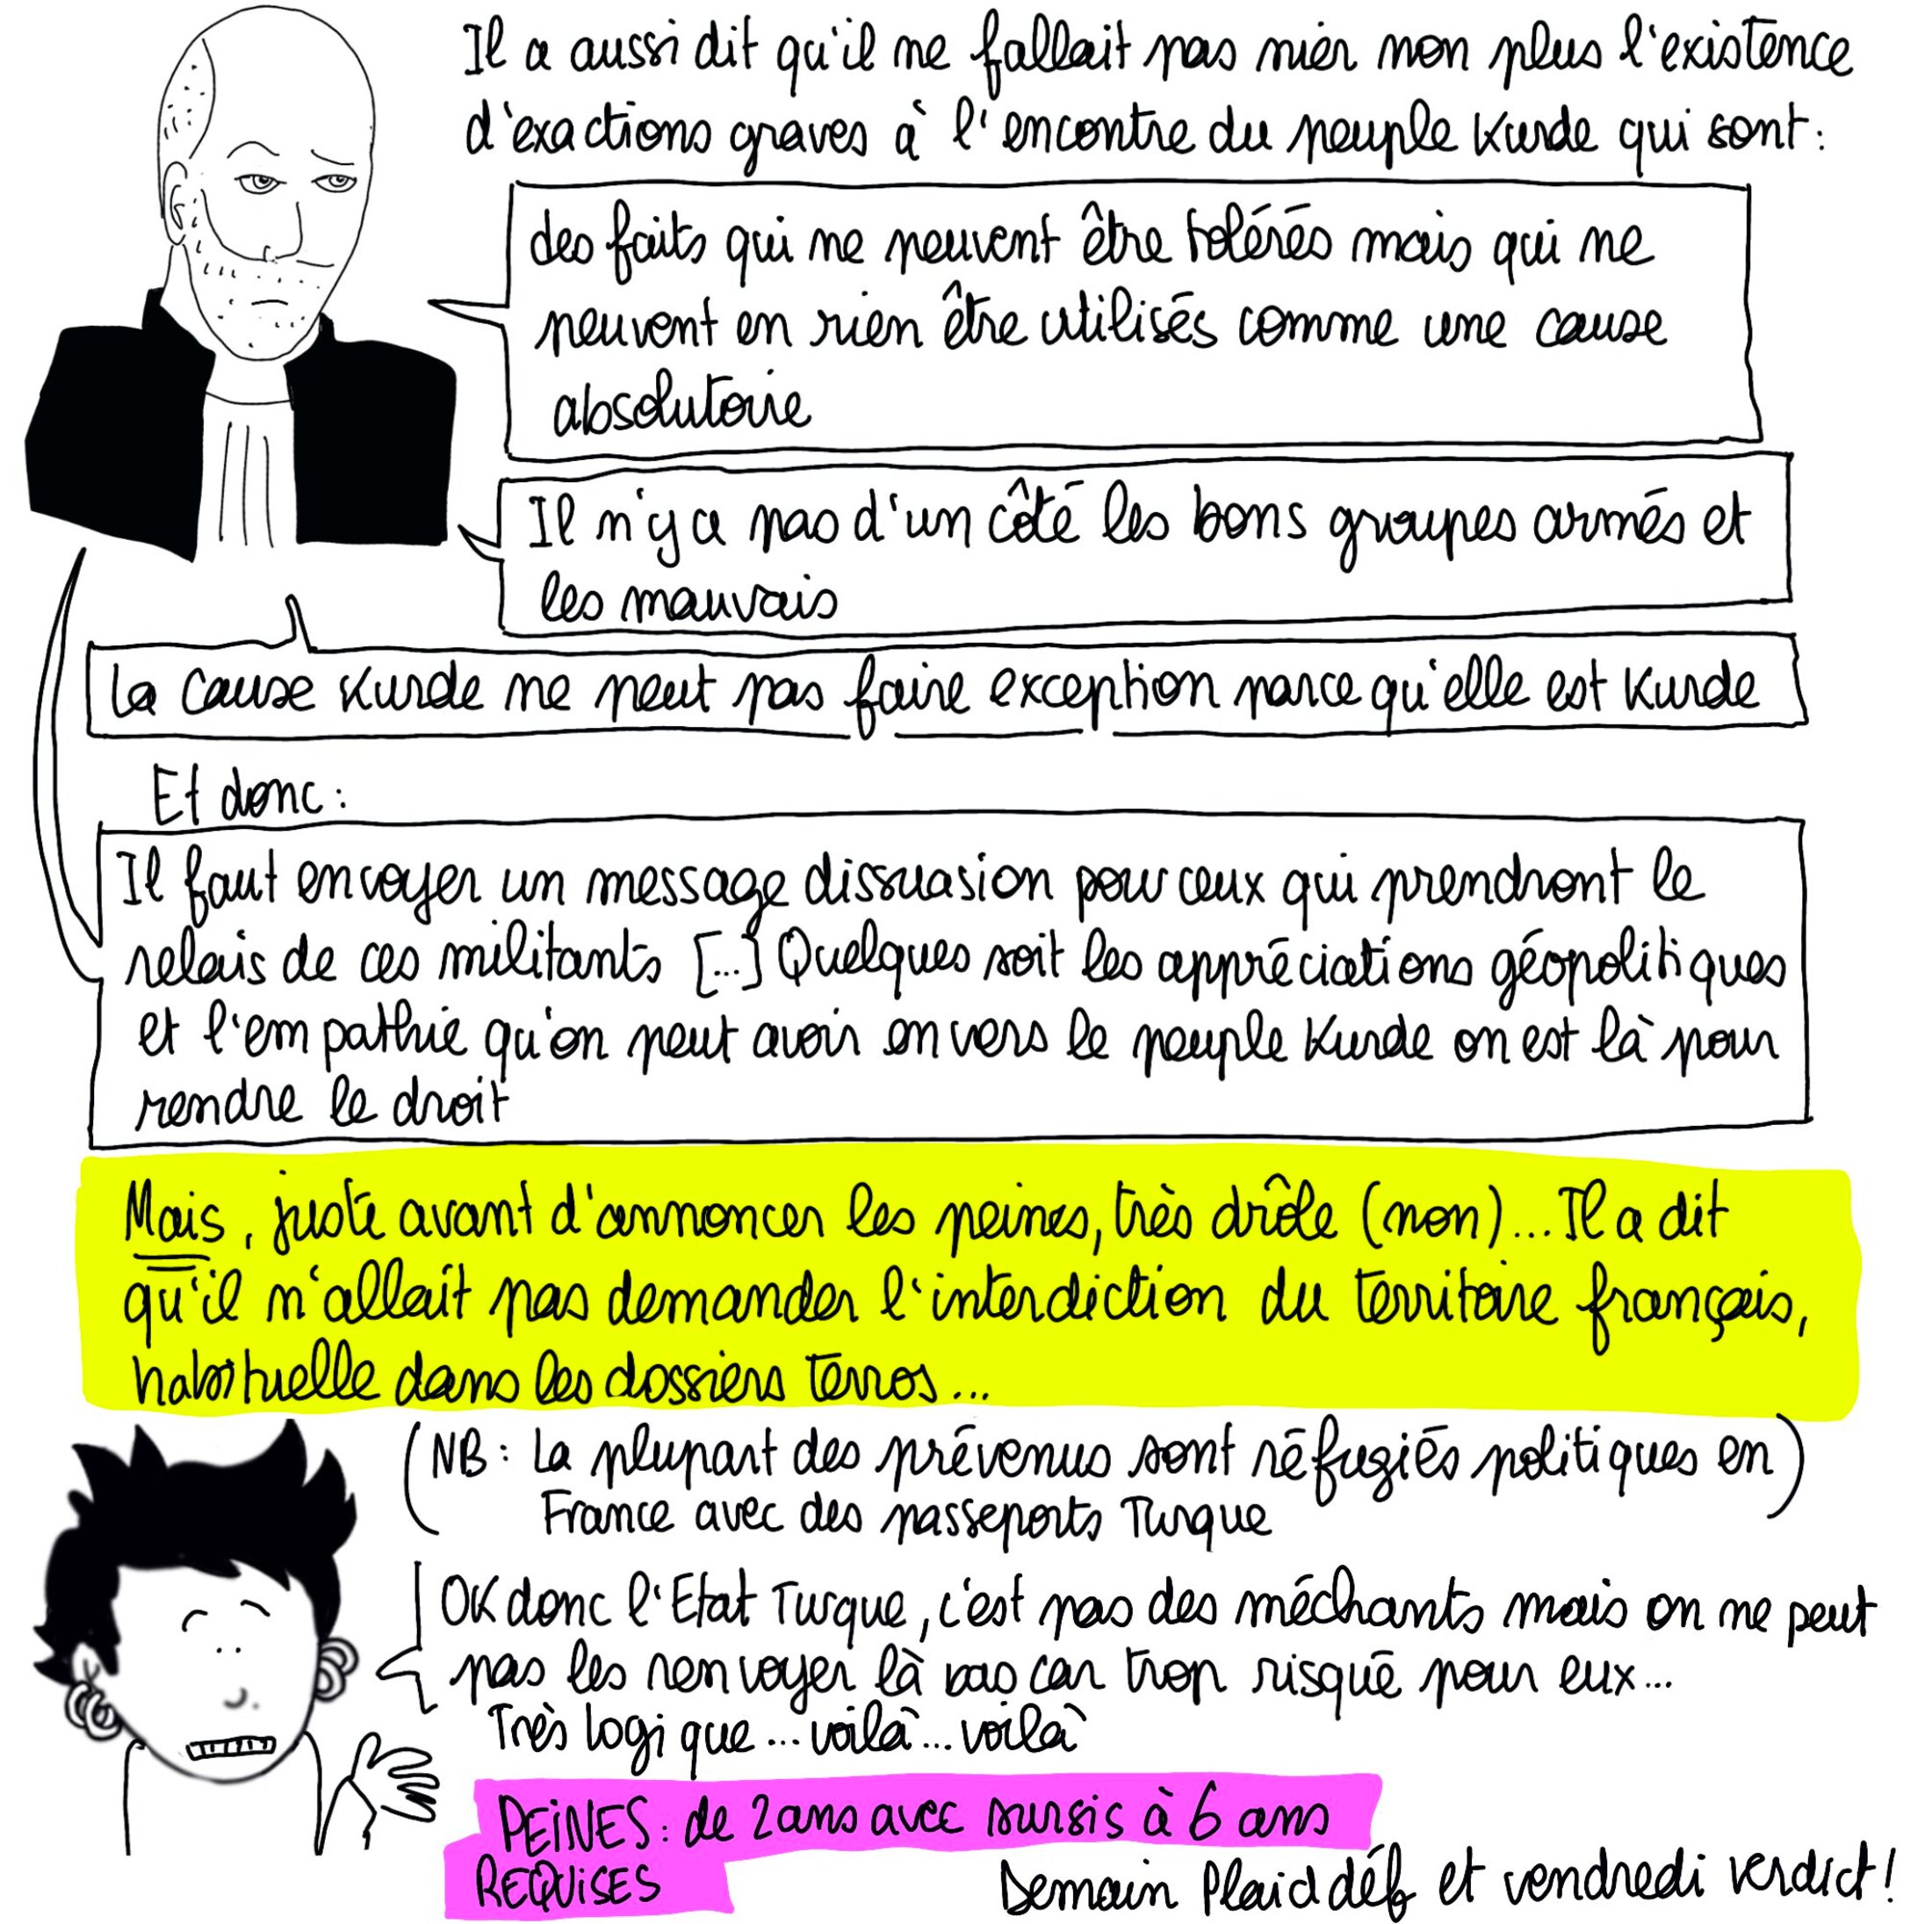 Il a aussi dit qu'il ne fallait pas nier non plus l'existence
d'exactions graves à l'encontre du peuple Kurde qui sont :
des faits qui ne peuvent être tolérés mais qui ne
peuvent en rien être utilisés comme une cause
absolutoire
Il n'y a pas d'un côté les bons groupes armés et
les mauvais
La cause Kurde ne peut pas faire exception parce qu'elle est Kurde
Et donc :
Il faut envoyer un message dissuasion pour ceux qui prendront le
relais de ces militants [...] Quelques soit les appréciations géopolitiques
et l'empathie qu'on peut avoir envers le peuple Kurde on est là pour
rendre le droit
Mais, juste avant d'annoncer les peines, très drôle (non)... Il a dit
qu'il n'allait pas demander l'interdiction du territoire français,
habituelle dans les dossiers terros...
(NB : La plupart des prévenus sont réfugiés politiques en
France avec des passeports Turque)
OK donc l'Etat Turque, c'est pas des méchants mais on ne peut
pas les renvoyer là bas car trop risqué pour eux...
Très logique... voilà... voilà
PEINES : de 2 ans avec sursis à 6 ans
REQUISES
Demain Plaid déf et vendredi verdict !